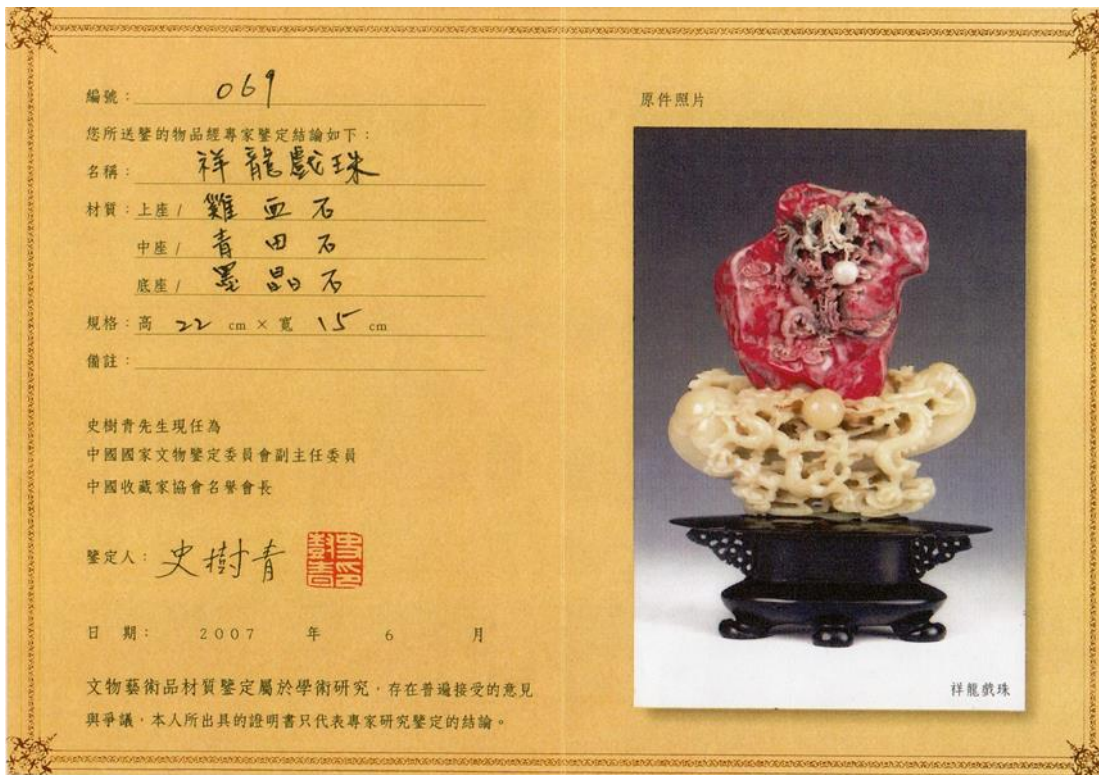 編號：069
您所送鑒的物品經專家鑒定結論如下：
名稱：祥龍戲珠
材質：上座/ 雞血石
中座/ 青田石
底座/ 墨晶石
規格：高 22 cm × 寬 15 cm
備註：
史樹青先生現任為
中國國家文物鑒定委員會副主任委員
中國收藏家協會名譽會長
鑒定人：史樹青
史樹青印
日 期： 2007 年 6 月
文物藝術品材質鑒定屬於學術研究，存在普遍接受的意見
與爭議，本人所出具的證明書只代表專家研究鑒定的結論。
原件照片
祥龍戲珠